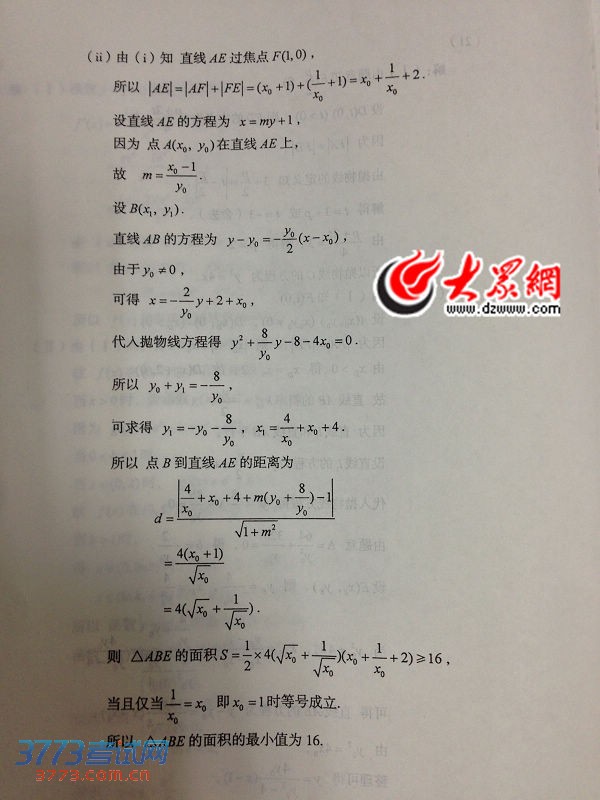 (ii) 由 (i) 知 直线 AE 过焦点 F(1,0),
所以 |AE|=|AF|+|FE|=(x₀+1)+(1/x₀+1)=x₀+1/x₀+2.
设直线 AE 的方程为 x=my+1,
因为 点 A(x₀, y₀) 在直线 AE 上,
故 m=(x₀-1)/y₀.
设 B(x₁, y₁).
直线 AB 的方程为 y-y₀=-y₀/2(x-x₀),
由于 y₀≠0,
大眾網
www.dzwww.com
可得 x=-2/y₀ y+2+x₀,
代入抛物线方程得 y²+8/y₀ y-8-4x₀=0.
所以 y₀+y₁=-8/y₀,
可求得 y₁=-y₀-8/y₀, x₁=4/x₀+x₀+4.
所以 点 B 到直线 AE 的距离为
d=|4/x₀+x₀+4+m(y₀+8/y₀)-1|/√(1+m²)
=4(x₀+1)/√x₀
=4(√x₀+1/√x₀).
则 △ABE 的面积 S=1/2×4(√x₀+1/√x₀)(x₀+1/x₀+2)≥16,
当且仅当 1/x₀=x₀ 即 x₀=1 时等号成立.
所以 △ABE 的面积的最小值为 16.
3773考试网
3773.com.cn